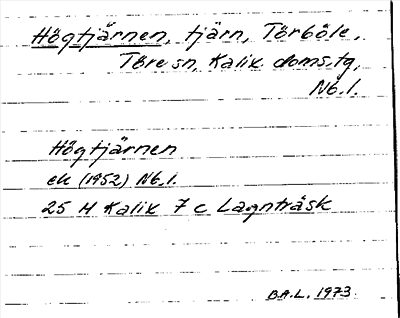 Högtjärnen, tjärn, Törböle,
Töre sn, Kalix doms.tg,
Nb.l.
Högtjärnen
ek (1952) Nb.l.
25 M Kalix 7 c Lagnträsk
B.A.L. 1973.